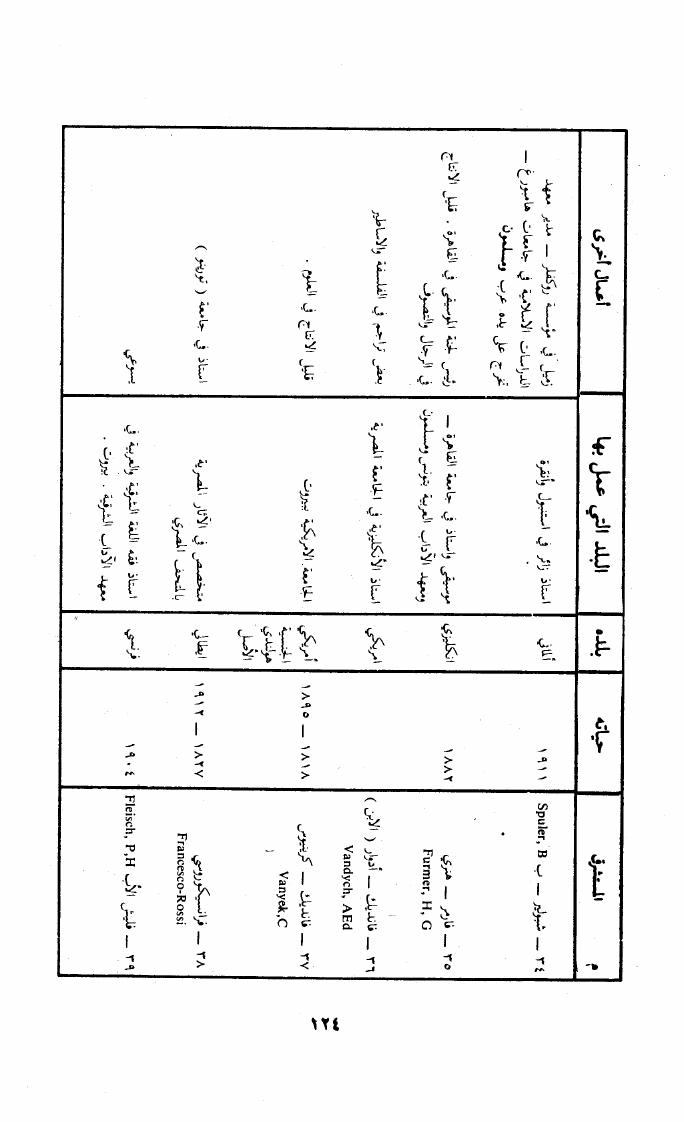 م المستشرق حياته بلده البلد التي عمل بها أعمال أخرى
٣٤ — شبولير — ب Spuler, B
١٩١١
ألماني
استاذ زائر في استنبول وأنقرة
زميل في مؤسسة روكفلر — مدير معهد
الدراسات الاسلامية في جامعات هامبورغ —
تخرج على يده عرب ومسلمون
٣٥ — فارمر — هنري
Furmer, H, G
١٨٨٢
انكليزي
موسيقى وأستاذ في جامعة القاهرة —
ومعهد الآداب العربية بتونس ومسلمون
رئيس لجنة الموسيقى في القاهرة . قليل الانتاج
في الرجال والتصوف
٣٦ — فانديك — أدوار ( الابن )
Vandych, AEd
امريكي
استاذ الأنكليزية في الجامعة المصرية
بعض تراجم في الفلسفة والاساطير
٣٧ — فانديك — كرينيوس
Vanyek,C
١٨١٨ — ١٨٩٥
أمريكي
الجنسية
هولندي
الأصل
الجامعة الامريكية ببيروت
قليل الانتاج في العلوم .
٣٨ — فرانسيكوروسي
Francesco-Rossi
١٨٢٧ — ١٩١٢
ايطالي
متخصص في الآثار المصرية
بالمتحف المصري
استاذ في جامعة ( تورينو )
٣٩ — فليش الأب Fleisch, P,H
١٩٠٤
فرنسي
استاذ فقه اللغة الشرقية والعربية في
معهد الآداب الشرقية . بيروت .
يسوعي
١٢٤